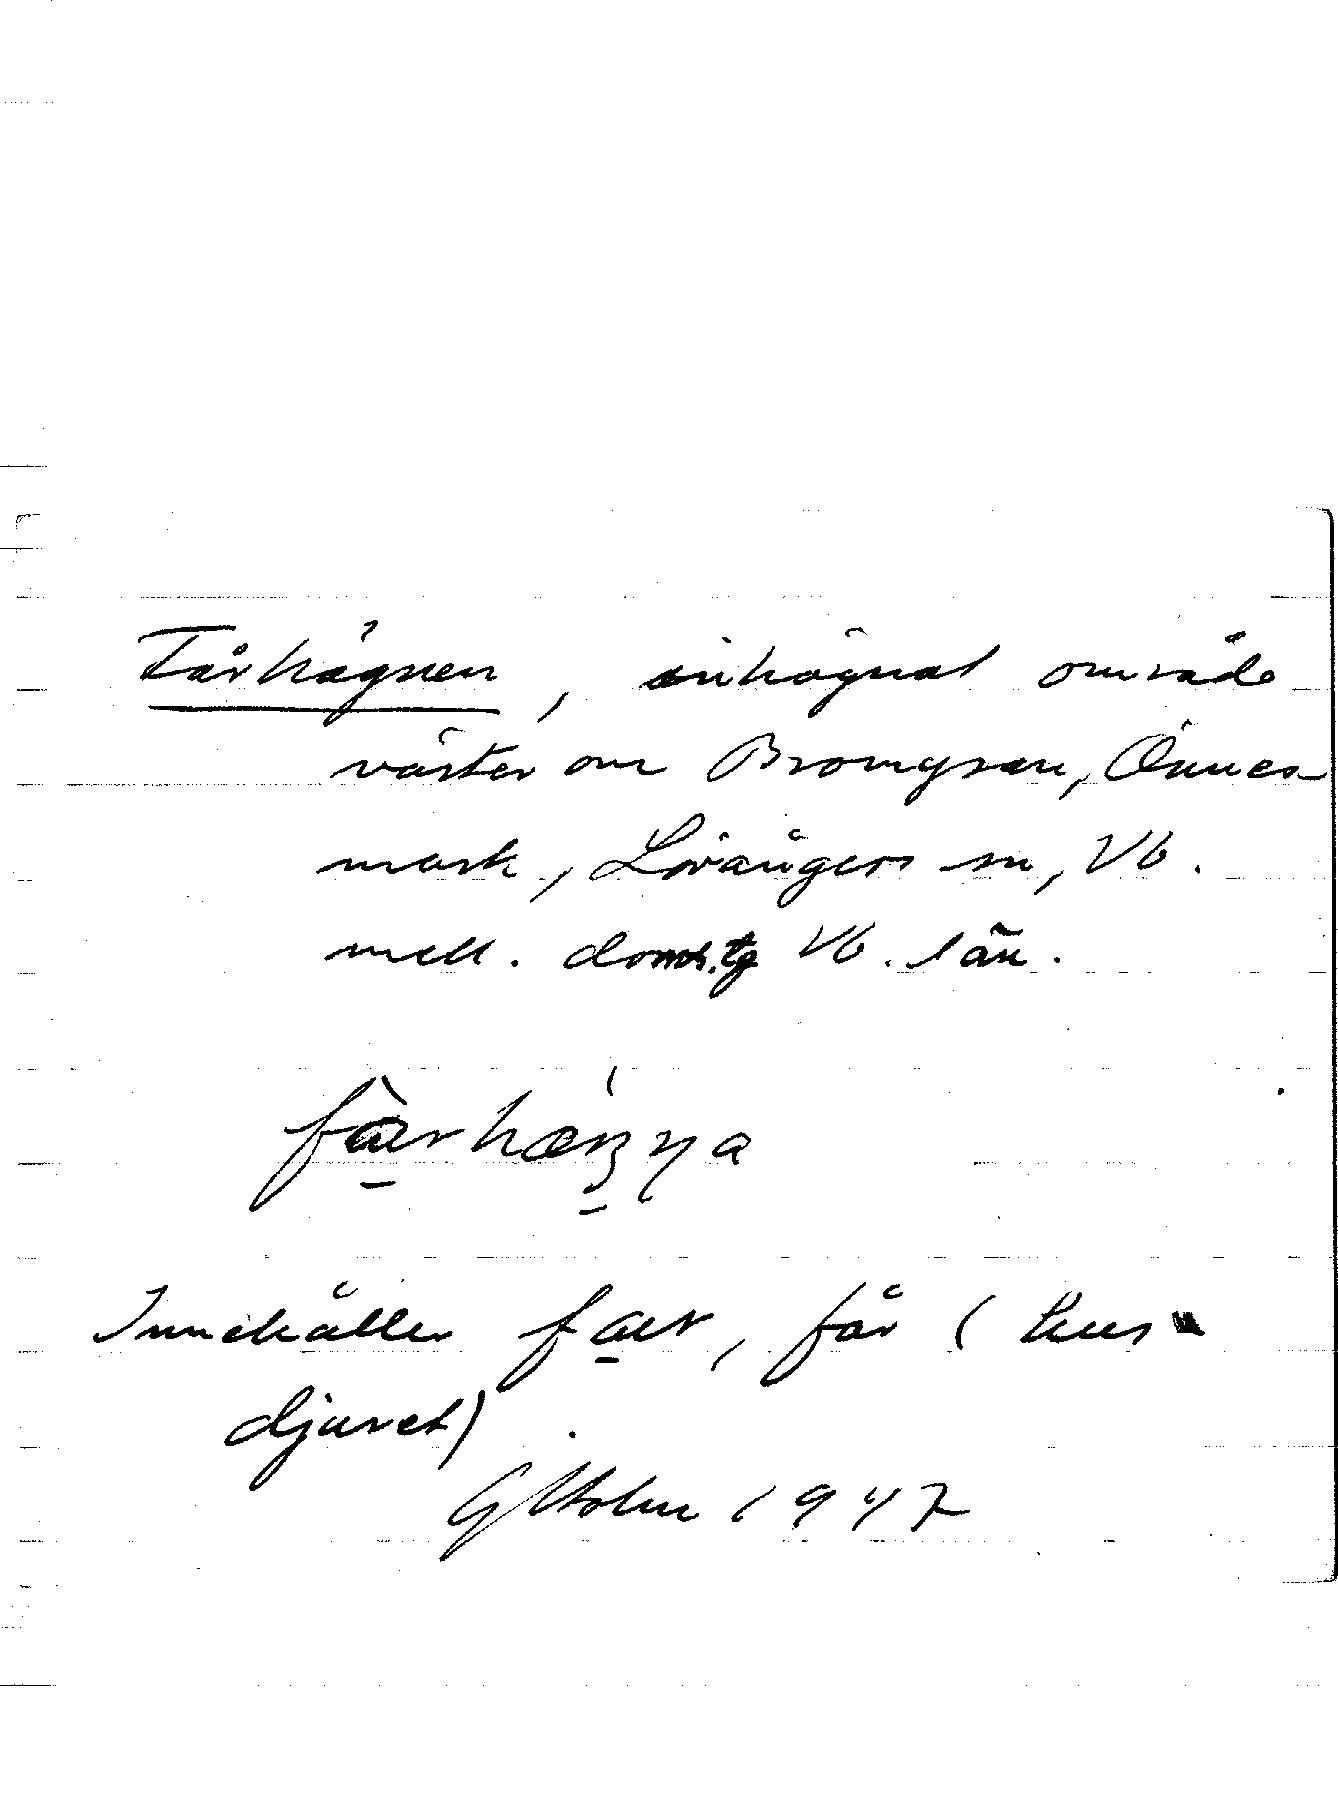 Fårhägnen, inhägnat område
väster om Bromyran, Önnes-
mark, Lövångers sn, Vb.
mell. doms.tg Vb. län.
Innehåller fær, får (hus-
djuret).
G Holm 1947